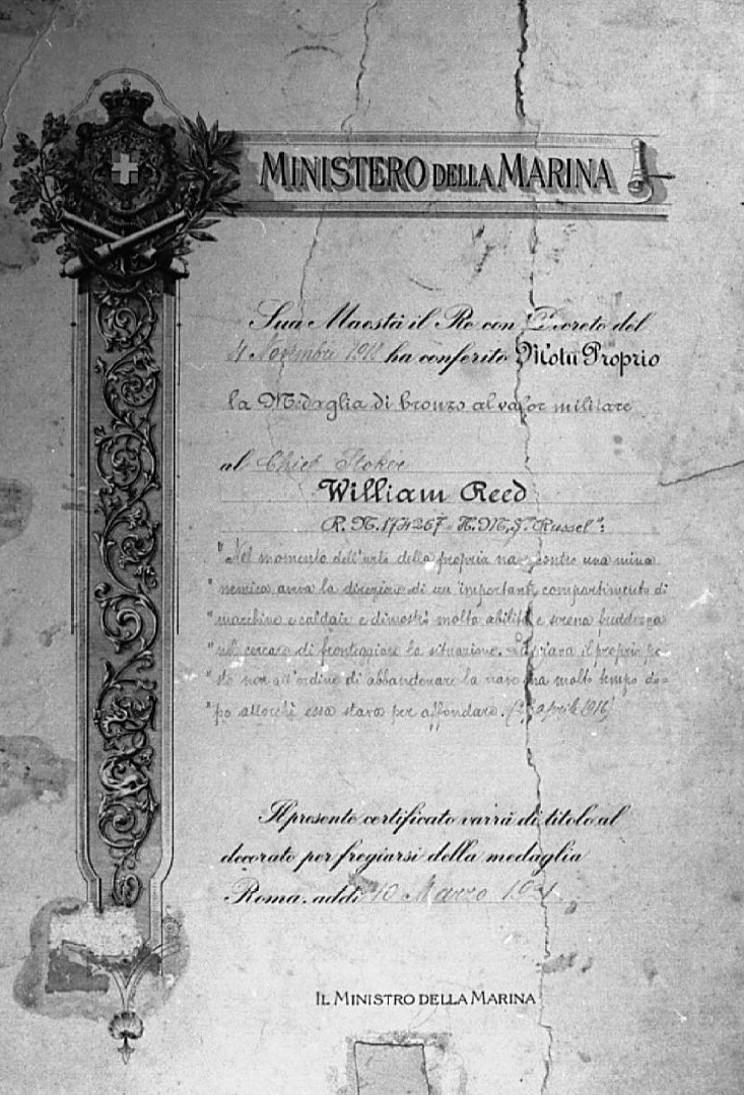 MINISTERO DELLA MARINA
Sua Maestà il Re con Decreto del
4 Novembre 1918 ha conferito Motu Proprio
la Medaglia di bronzo al valor militare
al Chief Stoker
William Reed
R. N. 174267 - H. M. S. "Russel":
"Nel momento dell'urto della propria nave contro una mina
"nemica aveva la direzione di un importante compartimento di
"macchine e caldaie e dimostrò molta abilità e serena freddezza
"nel cercare di fronteggiare la situazione. Lasciava il proprio po=
"sto non all'ordine di abbandonare la nave ma molto tempo do=
"po allorchè essa stava per affondare. aprile 1916)
Il presente certificato varrà di titolo al
decorato per fregiarsi della medaglia
Roma, addì 10 Marzo
IL MINISTRO DELLA MARINA